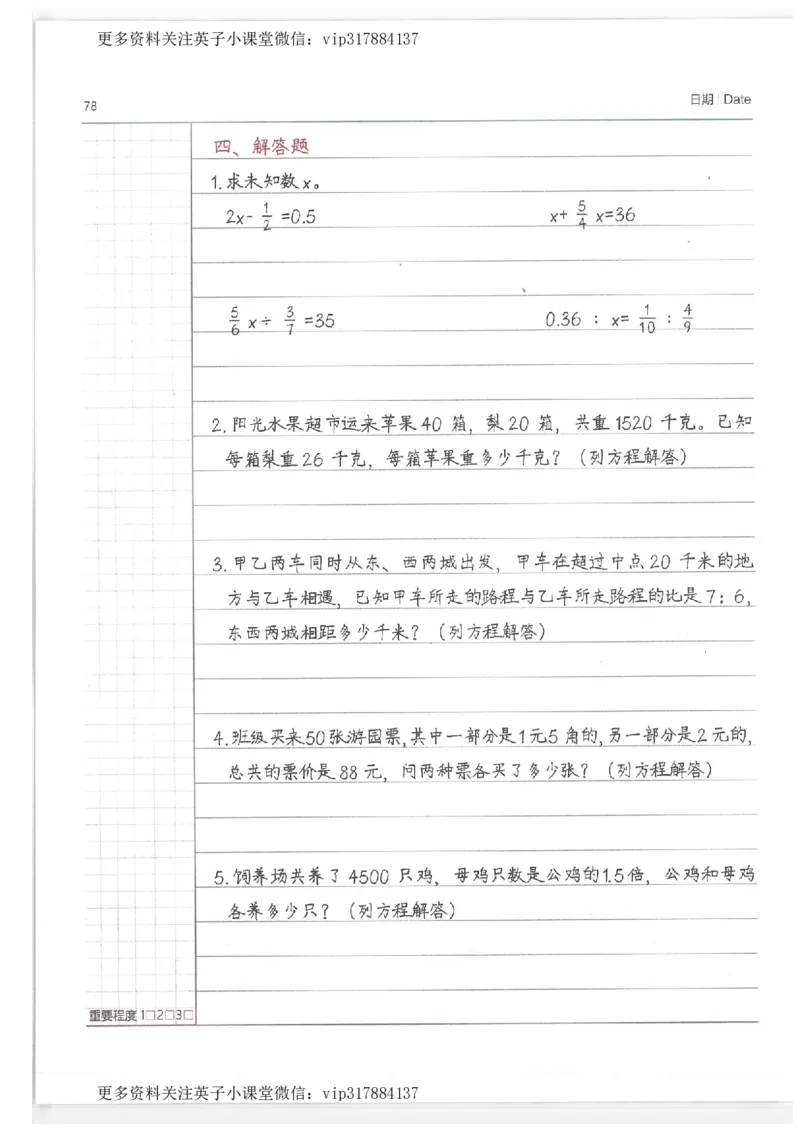 更多资料关注英子小课堂微信：vip317884137
78
日期 | Date
四、解答题
1.求未知数x。
2x- 1/2 =0.5    x+ 5/4 x=36
5/6 x÷ 3/7 =35    0.36 : x= 1/10 : 4/9
2.阳光水果超市运来苹果40箱，梨20箱，共重1520千克。已知
每箱梨重26千克，每箱苹果重多少千克？（列方程解答）
3.甲乙两车同时从东、西两城出发，甲车在超过中点20千米的地
方与乙车相遇，已知甲车所走的路程与乙车所走路程的比是7：6，
东西两城相距多少千米？（列方程解答）
4.班级买来50张游园票，其中一部分是1元5角的，另一部分是2元的，
总共的票价是88元，问两种票各买了多少张？（列方程解答）
5.饲养场共养了4500只鸡，母鸡只数是公鸡的1.5倍，公鸡和母鸡
各养多少只？（列方程解答）
重要程度1□2□3□
更多资料关注英子小课堂微信：vip317884137